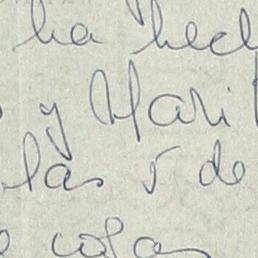 ha hech
y Mari
las 5 de
cosas